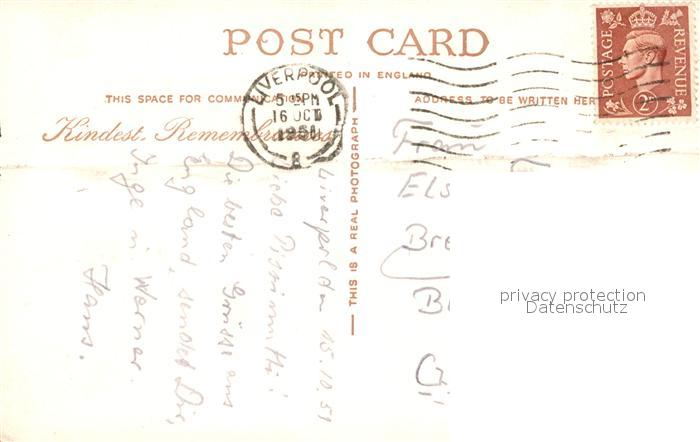 POST CARD
PRINTED IN ENGLAND
THIS SPACE FOR COMMUNICATION
ADDRESS TO BE WRITTEN HERE
Kindest Remembrances
THIS IS A REAL PHOTOGRAPH
LIVERPOOL
5 15 PM
16 OCT
1951
POSTAGE REVENUE
2D
Liverpool 15.10.51
Die besten Grüsse aus
England, sendet Dir,
Inge u. Werner.
Hans.
Frau
Els
Bre
B
privacy protection
Datenschutz